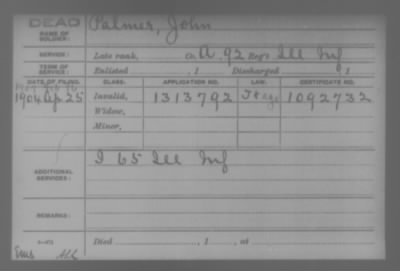 DEAD
NAME OF SOLDIER: Palmer, John
SERVICE: Late rank, Co. A, 92 Reg't Ill Inf
TERM OF SERVICE: Enlisted , 1 Discharged , 1
DATE OF FILING. CLASS. APPLICATION NO. LAW. CERTIFICATE NO.
1904 Ap 25 Invalid, 1313792 1092732
Widow,
Minor,
ADDITIONAL SERVICES: I 65 Ill Inf
REMARKS:
Died , 1 , at